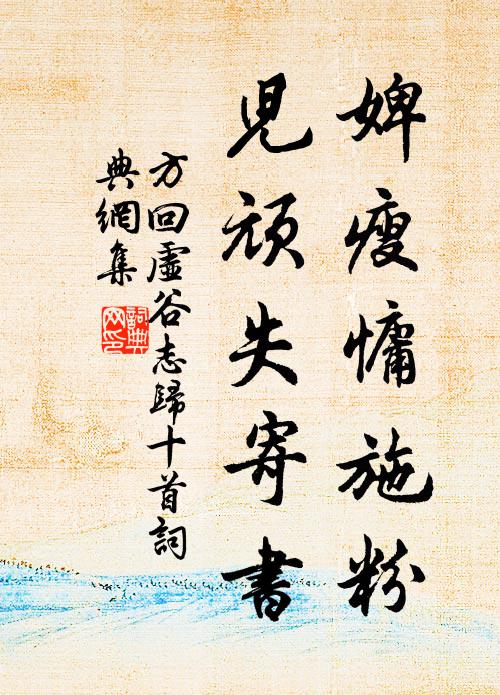 婢瘦慵施粉
兒頑失寄書
方回虛谷志歸十首詞
典網集
詞典網印